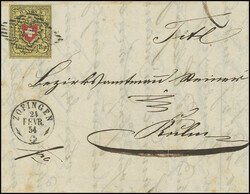 Titl
Bezirksamtmann Steiner
Kulm
ZOFINGEN
24
FEVR
54